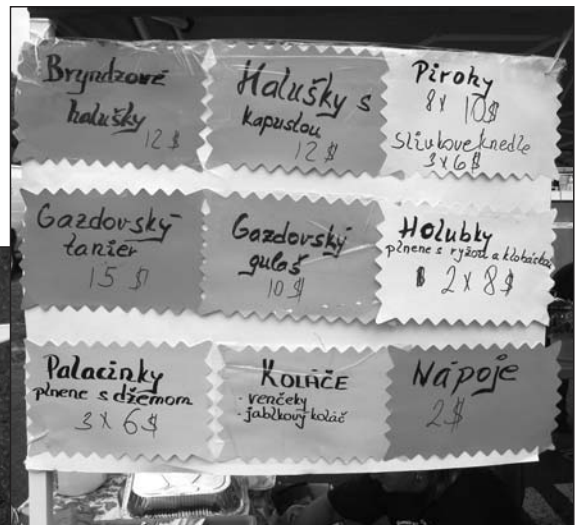 Bryndzové
halušky
12 $
Halušky s
kapustou
12 $
Pirohy
8x 10$
Slivkove knedle
3x6$
Gazdovský
tanier
15 $
Gazdovský
guláš
10 $
Holubky
plnene s ryžou a klobáskou
2x8$
Palacinky
plnene s džemom
3x6$
KOLÁČE
- venčeky
- jablkový koláč
Nápoje
2$